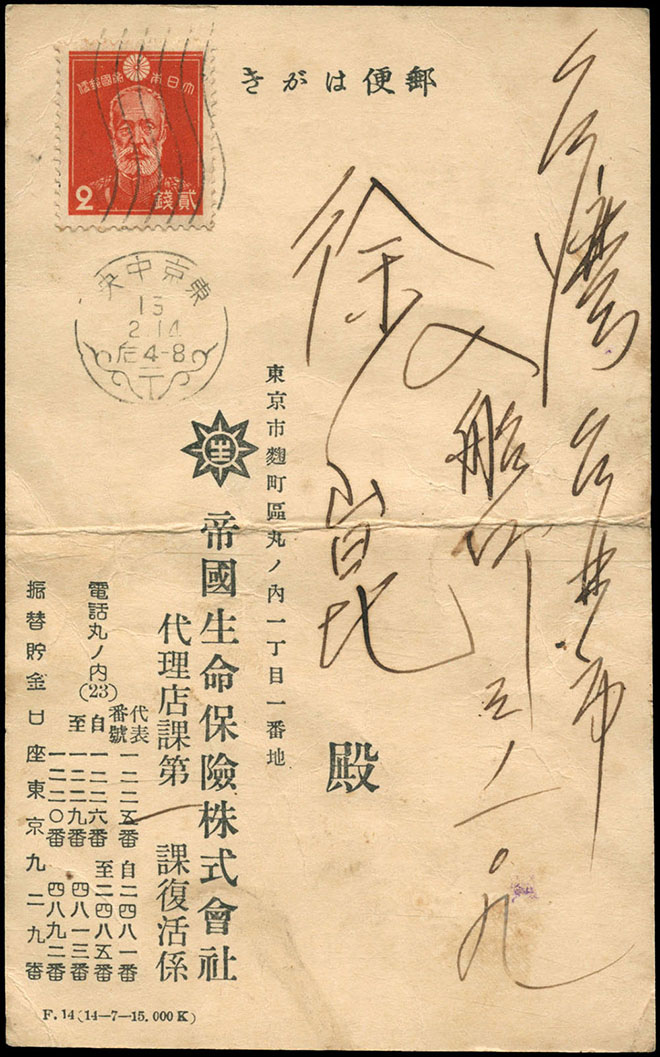 郵便はがき
大日本帝國郵便
2
貳錢
東京中央
15
2.14
后4-8
入船町
徐崑
殿
東京市麴町區丸ノ内一丁目一番地
生
帝國生命保險株式會社
代理店課第一課復活係
電話丸ノ内(23)
代表番號 一二二五番 自二四八一番
自一二二六番 至二四八五番
至一二二九番 四八一三番
一二二〇番 四八九二番
振替貯金口座東京九二九番
F.14(14—7—15.000K)